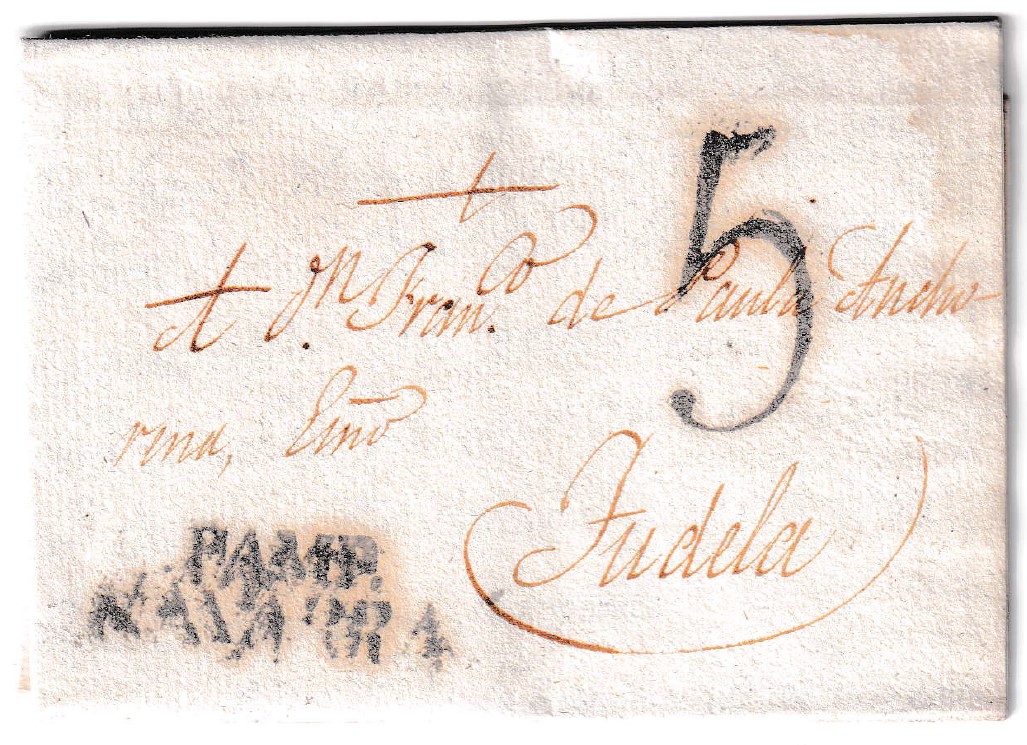 5
A D.n Fran.co de Paula Ancho-
rena, Esno
Tudela
PAMP.
NAVARRA